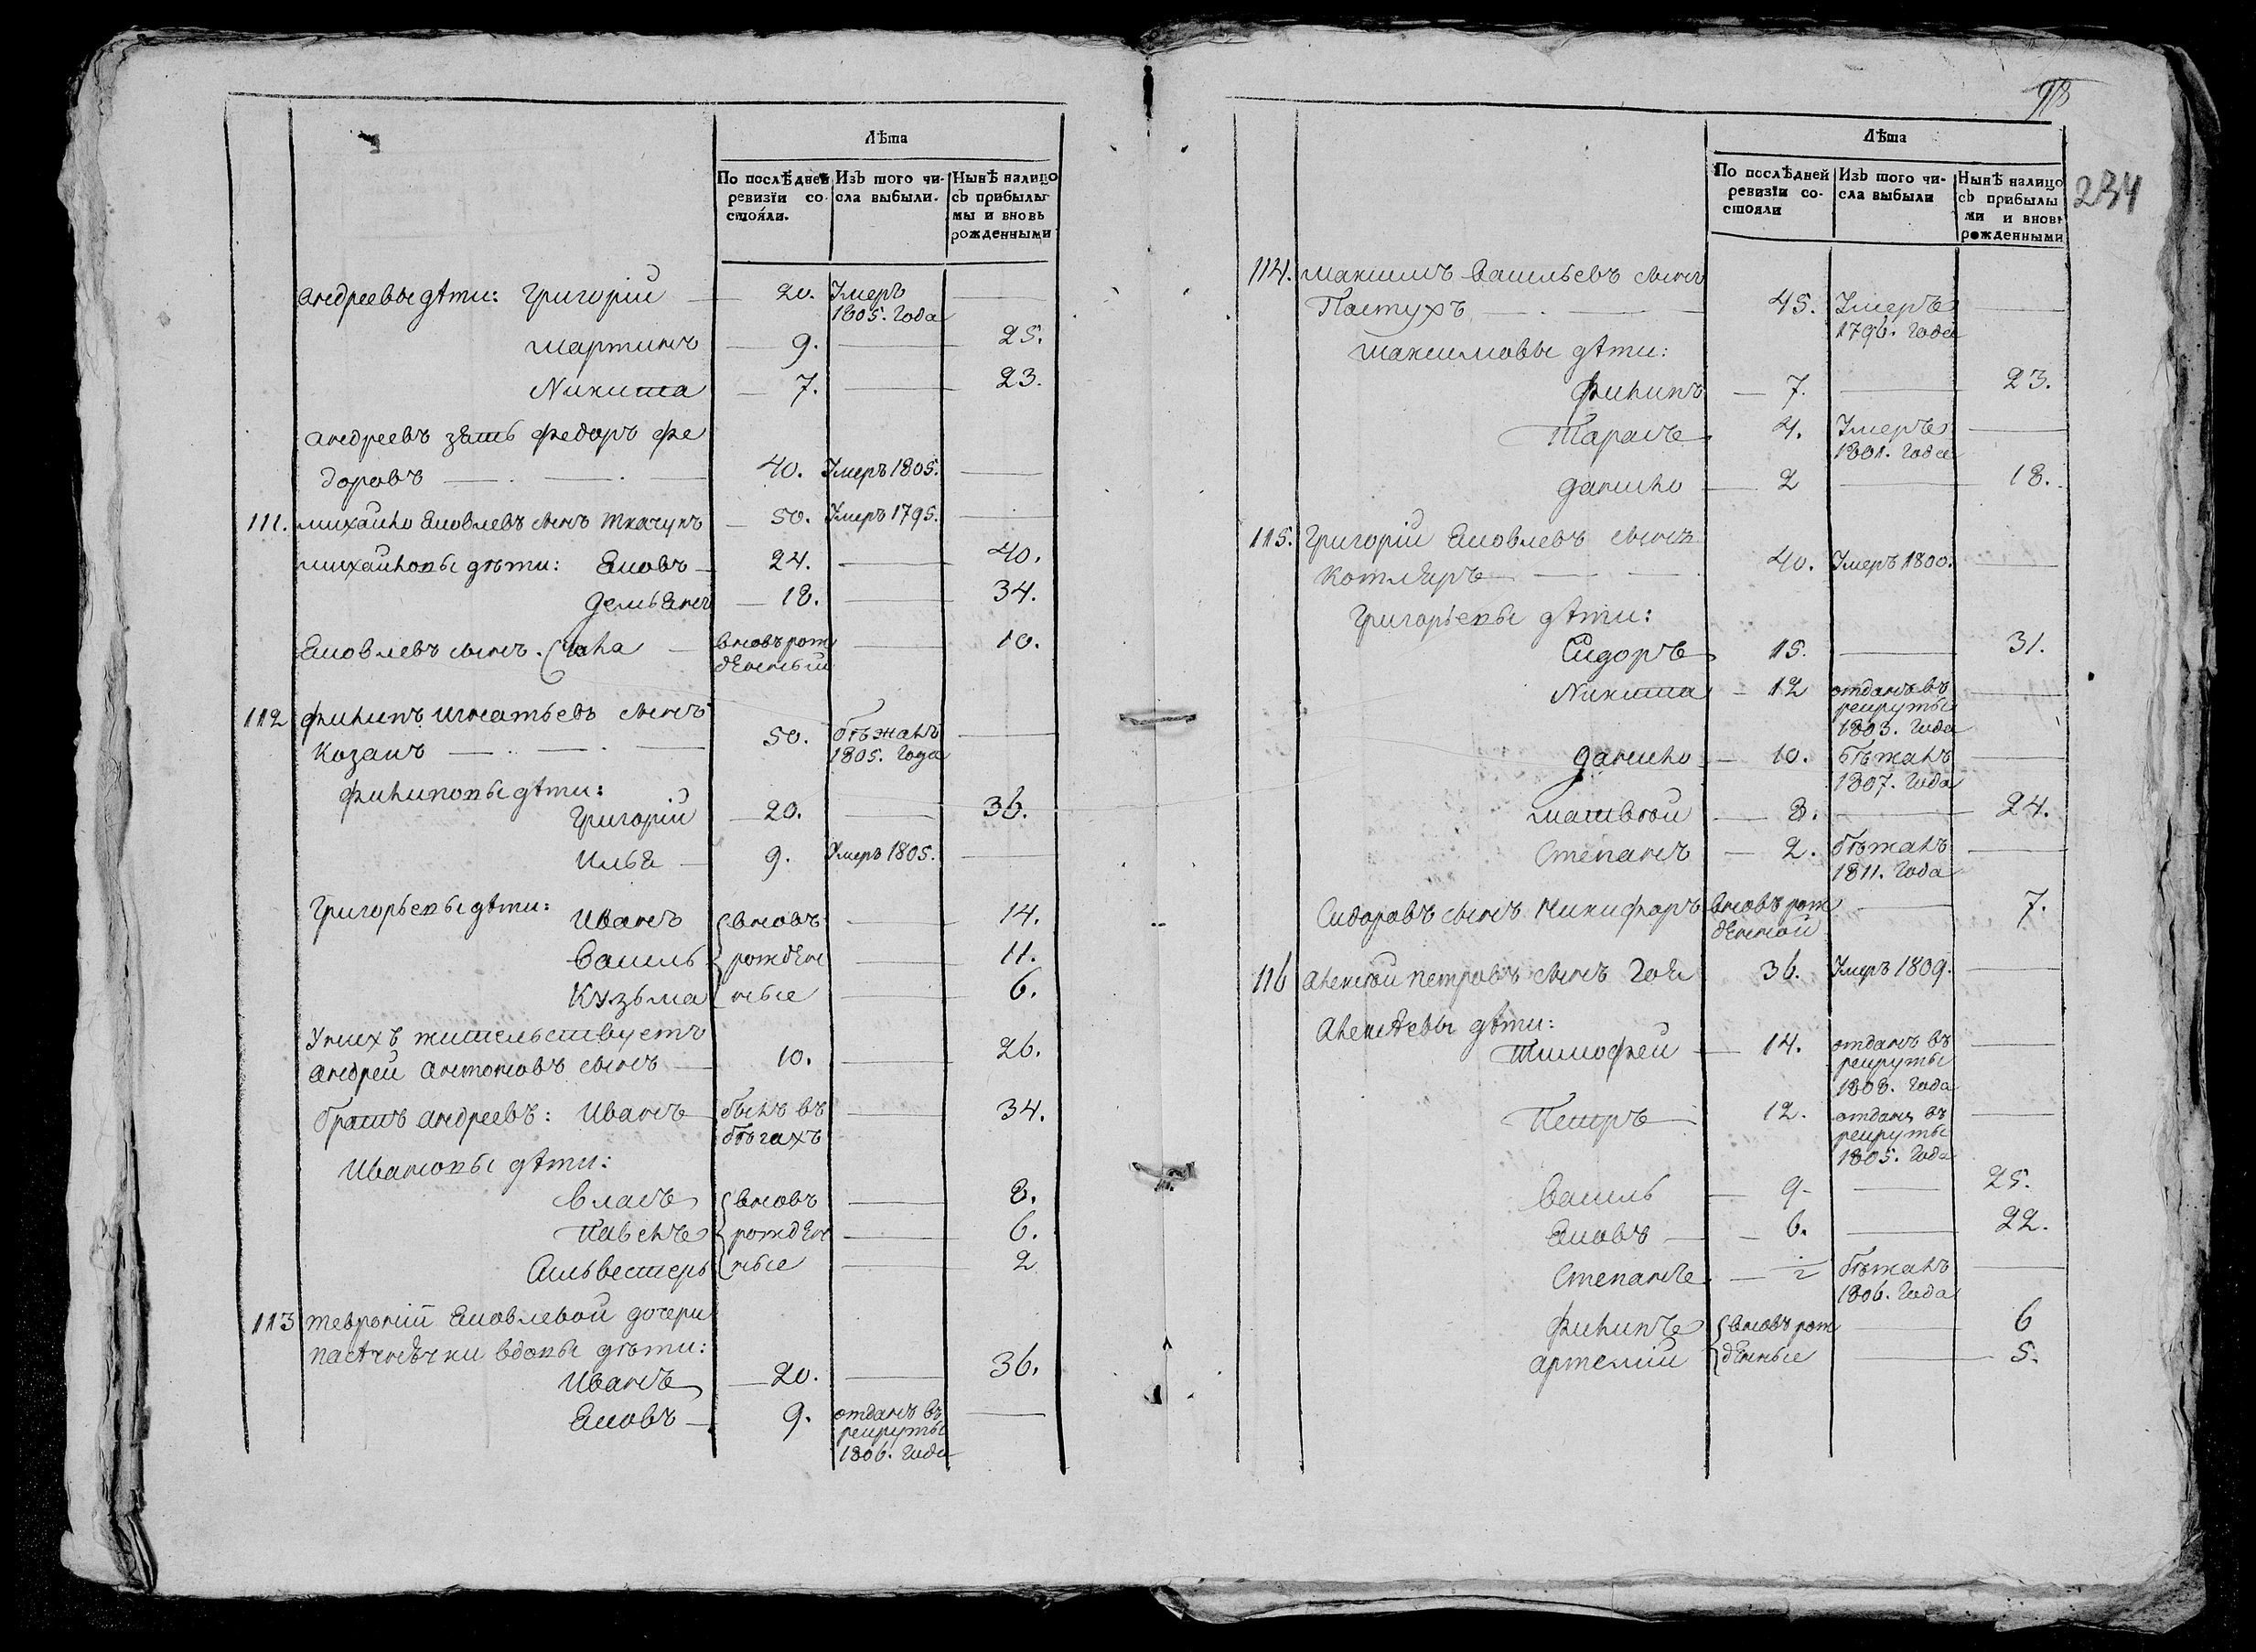 Лѣта
По послѣдней ревизïи состояли.
Изъ того числа выбыли.
Нынѣ налицо съ прибылымы и вновь рожденными
андреевы дѣти: Григорій — 20. Умеръ 1805. Года —
мартинъ — 9. — 25.
Никита — 7. — 23.
андреевъ зять федоръ фе
доровъ — 40. Умеръ 1805. —
111. михайло Яковлевъ сынъ ткачукъ — 50. Умеръ 1795. —
михайловы дѣти: Яковъ — 24. — 40.
демьянъ — 18. — 34.
Яковлевъ сынъ — вновь рож
дѣнный — 10.
112 филипъ игнатьевъ сынъ
козакъ — 50. бѣжалъ 1805. Года —
филиповы дѣти:
Григорій — 20. — 36.
Илья — 9. Умеръ 1805. —
Григорьевы дѣти: Иванъ вновь — 14.
Василь рождѣн — 11.
Кузьма ные — 6.
У нихъ жительствуетъ
андрей антоновъ сынъ — 10. — 26.
братъ андреевъ: Иванъ былъ въ бѣгахъ — 34.
Ивановы дѣти:
Власъ вновь — 8.
Павелъ рождѣн — 6.
Сильвестеръ ные — 2
113 Яковлевой дочери
вдовы дѣти:
Иванъ — 20. — 36.
Яковъ — 9. отданъ въ рекруты 1806. Года —
98
234
Лѣта
По послѣдней ревизïи состояли
Изъ того числа выбыли
Нынѣ налицо съ прибылыми и вновь рожденными
114. максимъ Васильевъ сынъ
Пастухъ — 45. Умеръ 1796. Года —
максимовы дѣти:
филипъ — 7. — 23.
Тарасъ 4. Умеръ 1801. Года —
данило — 2 — 18.
115. Григорій Яковлевъ сынъ
котляръ — 40. Умеръ 1800. —
Григорьевы дѣти:
Сидоръ 15. — 31.
Никита — 12 отданъ въ рекруты 1803. Года —
данило — 10. бѣжалъ 1807. Года —
матвѣй — 8. — 24.
Степанъ — 2. бѣжалъ 1811. Года —
Сидоровъ сынъ Никифоръ вновь рож
дѣнной — 7.
116 алексѣй петровъ сынъ 36. Умеръ 1809. —
алексѣевы дѣти:
Тимофей — 14. отданъ въ рекруты 1808. Года —
Петръ 12. отданъ въ рекруты 1805. Года —
Василь — 9 — 25.
Яковъ — 6. — 22.
Степанъ — бѣжалъ 1806. Года —
филипъ вновь рож — 6
артемій дѣнные — 5.